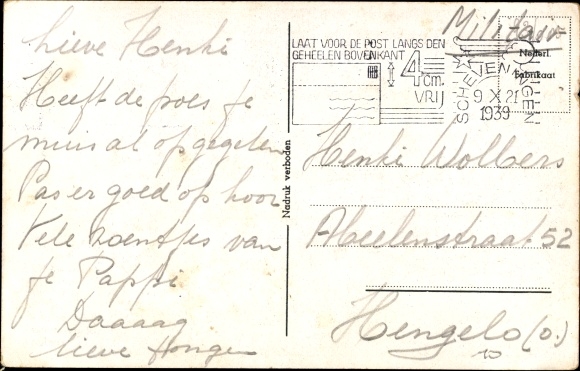 Lieve Henki
Heeft de poes je
muis al opgegeten
Pas er goed op hoor
Vele zoentjes van
je Pappi
Daaaag
lieve Jongen
Nadruk verboden
Militair
LAAT VOOR DE POST LANGS DEN
GEHEELEN BOVENKANT
4 cm.
VRIJ
SCHEVENINGEN
9 X 21
1939
Nederl.
Fabrikaat
Henki Wolbers
Abeelenstraat 52
Hengelo (O.)